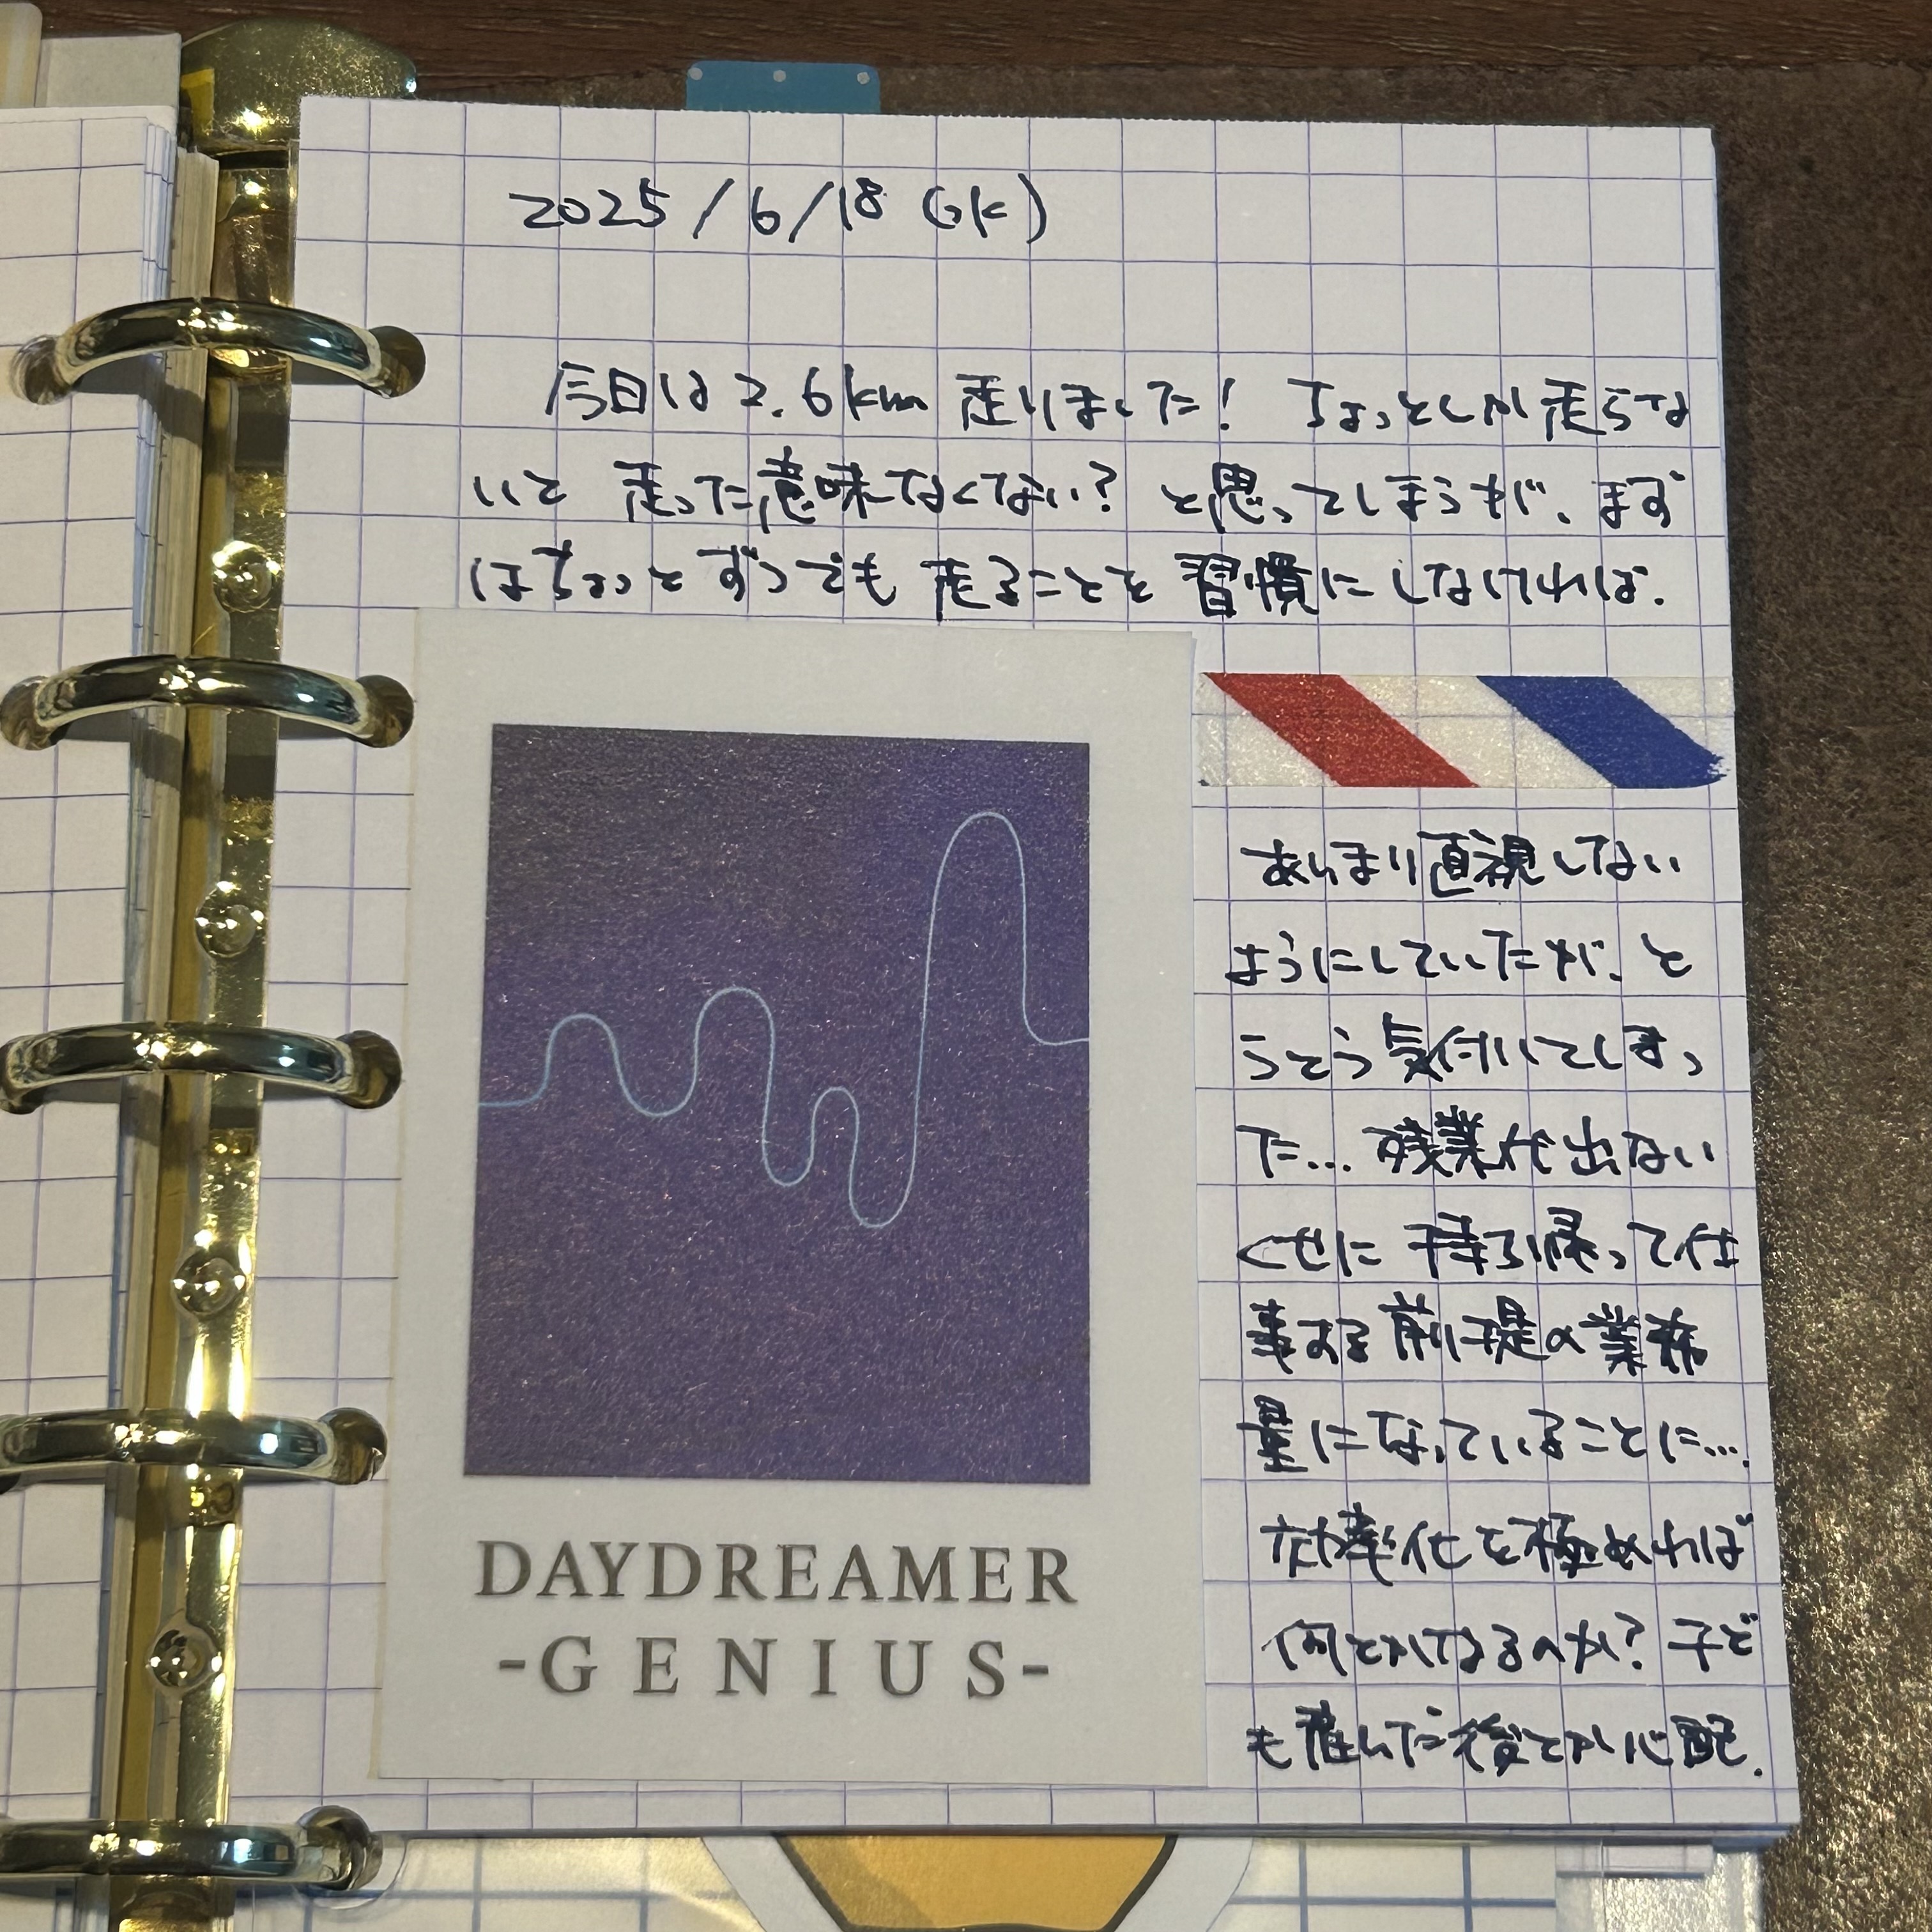 2025/6/18 (水)
今日は2.6km 走りました! ちょっとしか走らな
いと 走った意味なくない? と思ってしまうが、まず
はちょっとずつでも 走ることを 習慣に しなければ.
あんまり直視しない
ようにしていたが、と
うとう気付いてしまっ
た… 残業代出ない
くせに 持ち帰って仕
事する前提の業務
量になっていることに….
効率化を極めれば
何とかなるのか? 子ど
も産んだ後とか心配.
DAYDREAMER
-GENIUS-